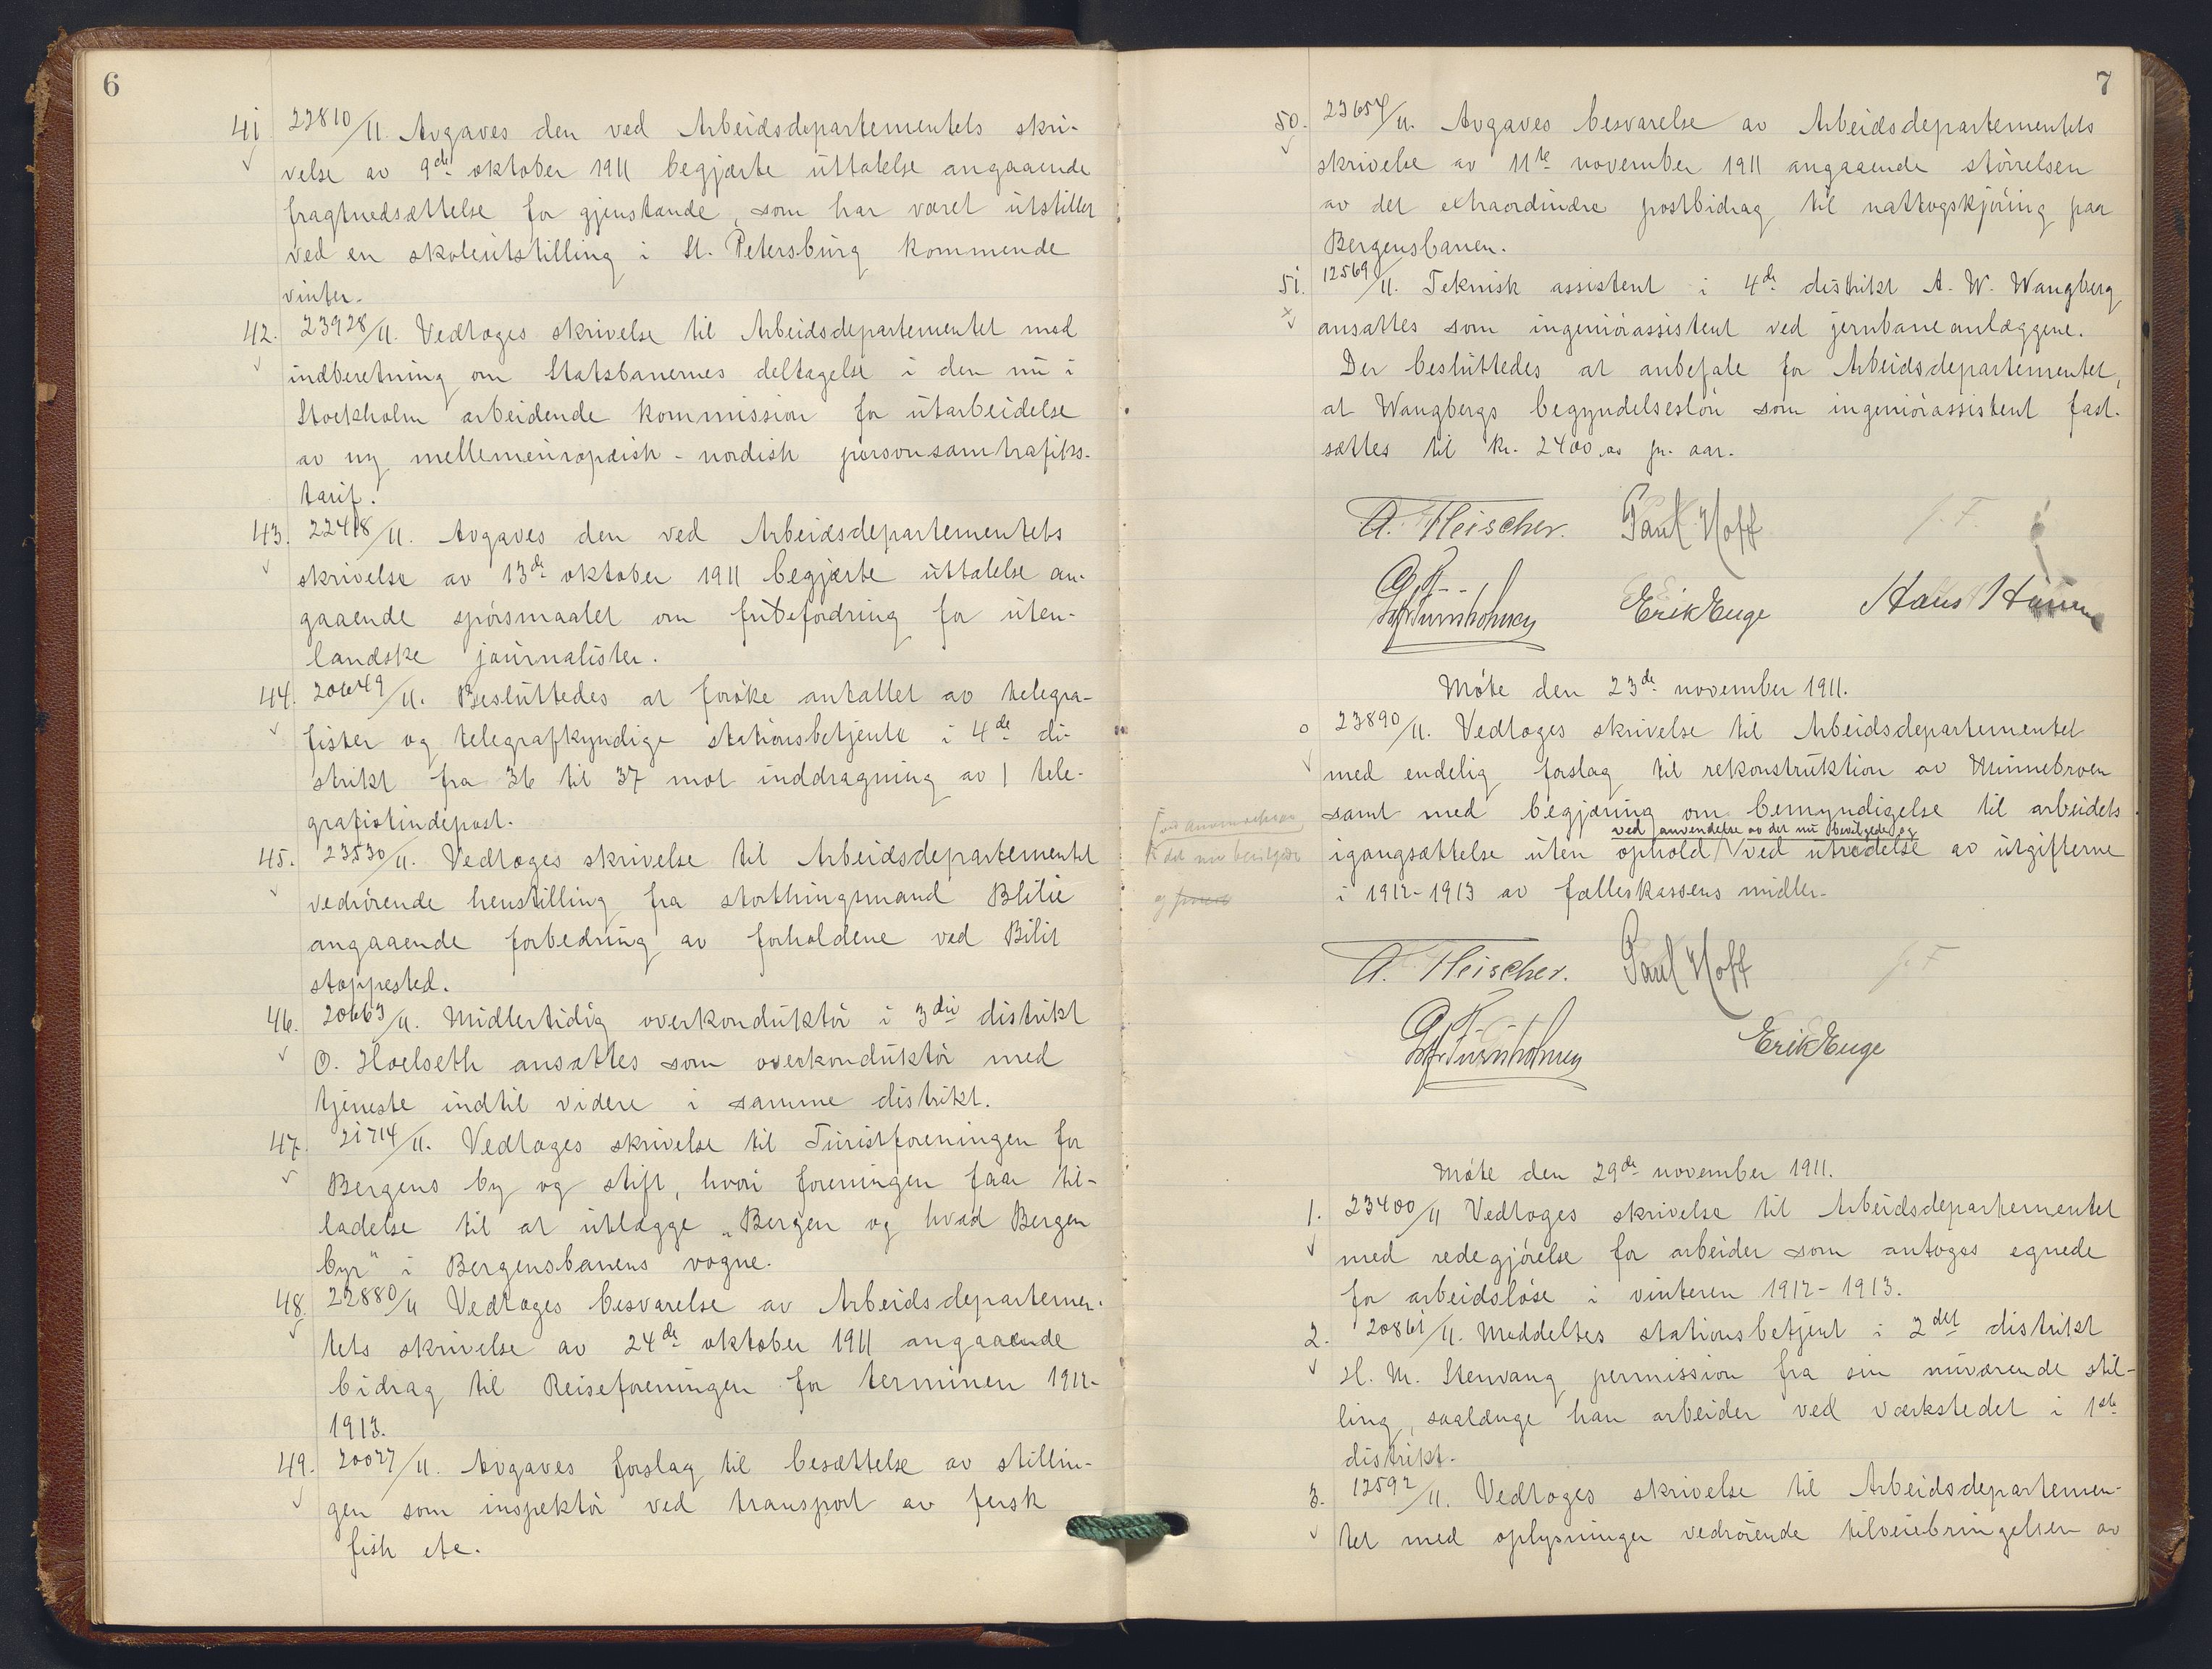 6
41. 22810/11. Avgaves den ved Arbeidsdepartementets skri-
velse av 9de oktober 1911 begjærte uttalelse angaaende
fragtnedsættelse for gjenstande, som har været utstillet
ved en skoleutstilling i St. Petersburg kommende
vinter.
42. 23928/11. Vedtoges skrivelse til Arbeidsdepartementet med
indberetning om Statsbanernes deltagelse i den nu i
Stockholm arbeidende kommission for utarbeidelse
av ny mellemeuropæisk-nordisk personsamtrafiks-
tarif.
43. 22418/11. Avgaves den ved Arbeidsdepartementets
skrivelse av 13de oktober 1911 begjærte uttalelse an-
gaaende spørsmaalet om fribefordring for uten-
landske journalister.
44. 20649/11. Besluttedes at forøke antallet av telegra-
fister og telegrafkyndige stationsbetjente i 4de di-
strikt fra 36 til 37 mot inddragning av 1 tele-
grafistindepost.
45. 23530/11. Vedtoges skrivelse til Arbeidsdepartementet
vedrørende henstilling fra storthingsmand Blilie
angaaende forbedring av forholdene ved Bilit
stoppested.
46. 20663/11. Midlertidig overkonduktør i 3die distrikt
O. Hoelseth ansattes som overkonduktør med
tjeneste indtil videre i samme distrikt.
47. 21714/11. Vedtoges skrivelse til Turistforeningen for
Bergens by og stift, hvori foreningen faar til-
ladelse til at utlægge „Bergen og hvad Bergen
byr" i Bergensbanens vogne.
48. 22880/11 Vedtoges besvarelse av Arbeidsdepartemen-
tets skrivelse av 24de oktober 1911 angaaende
bidrag til Reiseforeningen for terminen 1912-
1913.
49. 20027/11. Avgaves forslag til besættelse av stillin-
gen som inspektør ved transport av fersk
fisk etc.
7
50. 23657/11. Avgaves besvarelse av Arbeidsdepartementets
skrivelse av 11te november 1911 angaaende størrelsen
av det extraordinære postbidrag til nattogskjøring paa
Bergensbanen.
51. 12569/11. Teknisk assistent i 4de distrikt A. W. Wangberg
ansattes som ingeniørassistent ved jernbaneanlæggene.
Der besluttedes at anbefale for Arbeidsdepartementet,
at Wangbergs begyndelsesløn som ingeniørassistent fast-
sættes til kr. 2400.00 pr. aar.
A. Fleischer. Paul Hoff J. F
Erik Euge Hans Hansen
Møte den 23de november 1911.
23890/11. Vedtoges skrivelse til Arbeidsdepartementet
med endelig forslag til rekonstruktion av Minnebroen
samt med begjæring om bemyndigelse til arbeidets
ved anvendelse av det nu bevilgede og
igangsættelse uten ophold ved utredelse av utgifterne
i 1912-1913 av fælleskassens midler.
det nu bevilgede
og
A. Fleischer. Paul Hoff J. F
Erik Euge
Møte den 29de november 1911.
1. 23400/11 Vedtoges skrivelse til Arbeidsdepartementet
med redegjørelse for arbeider som antoges egnede
for arbeidsløse i vinteren 1912-1913.
2. 20861/11. Meddeltes stationsbetjent i 2det distrikt
H. M. Stenvang permission fra sin nuværende stil-
ling, saalænge han arbeider ved værkstedet i 1ste
distrikt.
3. 12592/11. Vedtoges skrivelse til Arbeidsdepartemen-
tet med oplysninger vedrørende tilveiebringelsen av